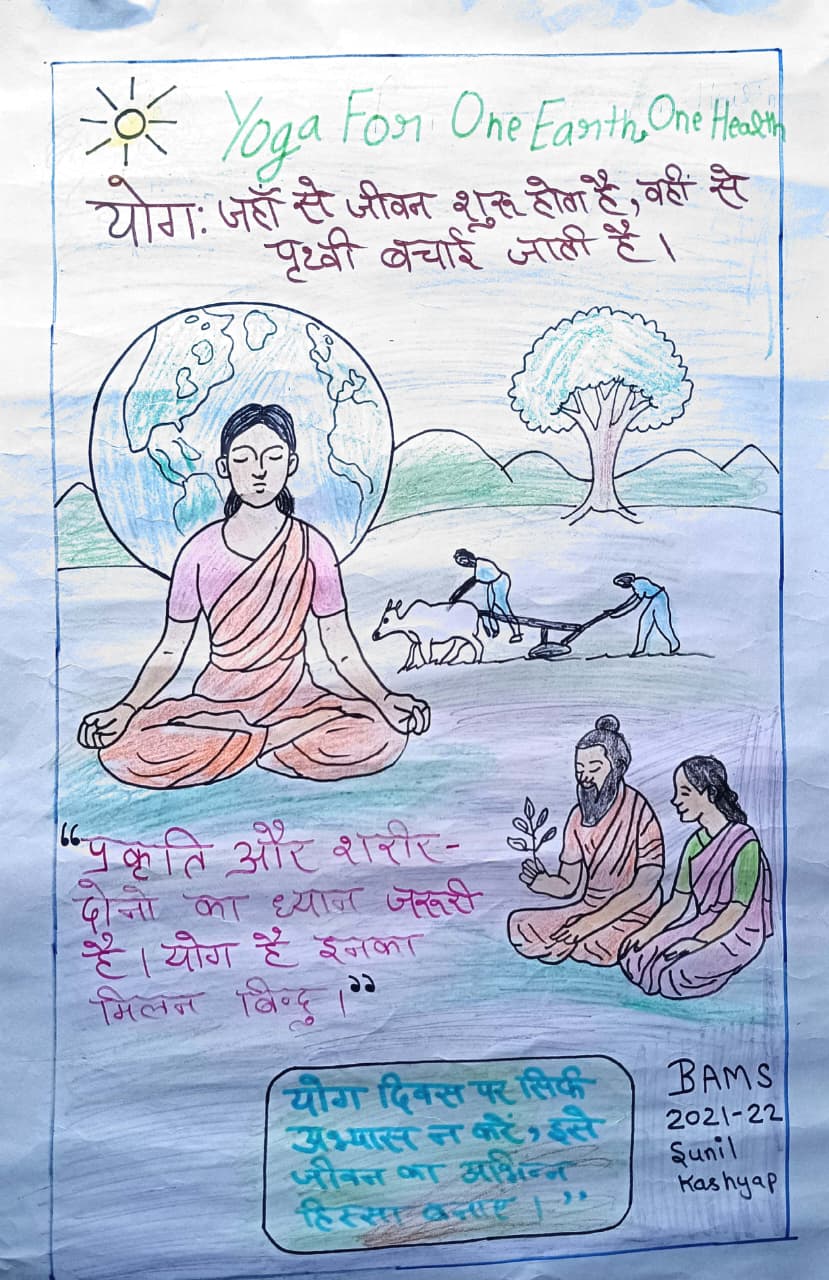 Yoga For One Earth, One Health
योग: जहाँ से जीवन शुरू होता है, वहीं से
पृथ्वी बचाई जाती है।
“प्रकृति और शरीर-
दोनो का ध्यान जरूरी
है। योग है इनका
मिलन बिन्दु।”
योग दिवस पर सिर्फ
अभ्यास न करें, इसे
जीवन का अभिन्न
हिस्सा बनाए।”
BAMS
2021-22
Sunil
Kashyap